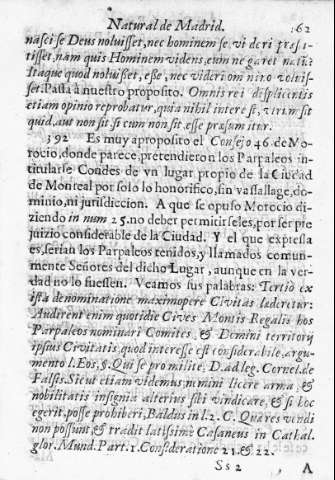 Natural de Madrid. 162
nasci se Deus noluisset, nec hominem se vi deri præsti-
tisset, nam quis Hominem videns, eum negaret natũ?
Itaque quod noluißet, eße, nec videri omnino volvis-
set. Passa à nuestro proposito. Omnis rei displicentis
etiam opinio reprobatur, quia nihil interest, utrum sit
quid, aut non sit, si cum non sit, esse præsumitur.
392 Es muy aproposito el Consejo 46 de Mo-
rocio, donde parece, pretendieron los Parpaleos in-
titularse Condes de vn lugar propio de la Ciudad
de Monreal por solo lo honorifico, sin vassallage, do-
minio, ni jurisdiccion. A que se opuso Morocio di-
ziendo in num 25. no deber permitirseles, por ser pre
juizio considerable de la Ciudad. Y el que expressa
es, serian los Parpaleos tenidos, y llamados comun-
mente Señores del dicho Lugar, aunque en la ver-
dad no lo fuessen. Veamos sus palabras: Tertio ex
ista denominatione maximopere Civitas læderetur:
Audirent enim quotidie Cives Montis Regalis hos
Parpaleos nominari Comites, & Domini territorij
ipsius Civitatis, quod interesse est considerabile, argu-
mento l. Eos, §. Qui se pro milite, D. ad leg. Cornel. de
Falsis. Sicut etiam videmus, nemini licere arma, &
nobilitatis insignia alterius sibi vindicare, & si hoc
egerit, posse prohiberi, Baldus in l. 2. C. Quæ res vendi
non possunt, & tradit latissime Casaneus in Cathal.
glor. Mund. Part. 1. Consideratione 21. & 22.
Ss 2 A